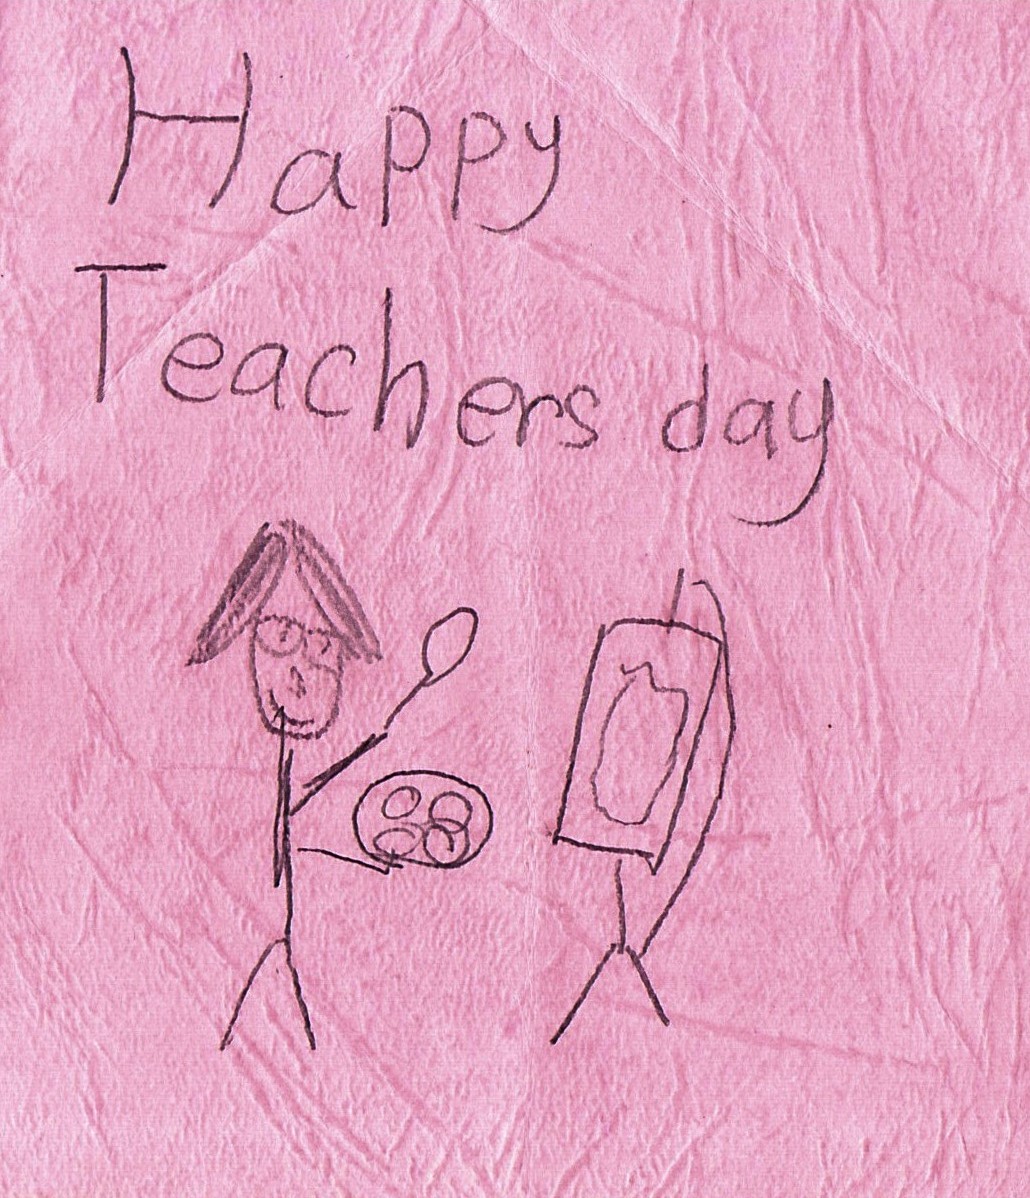 Happy
Teachers day